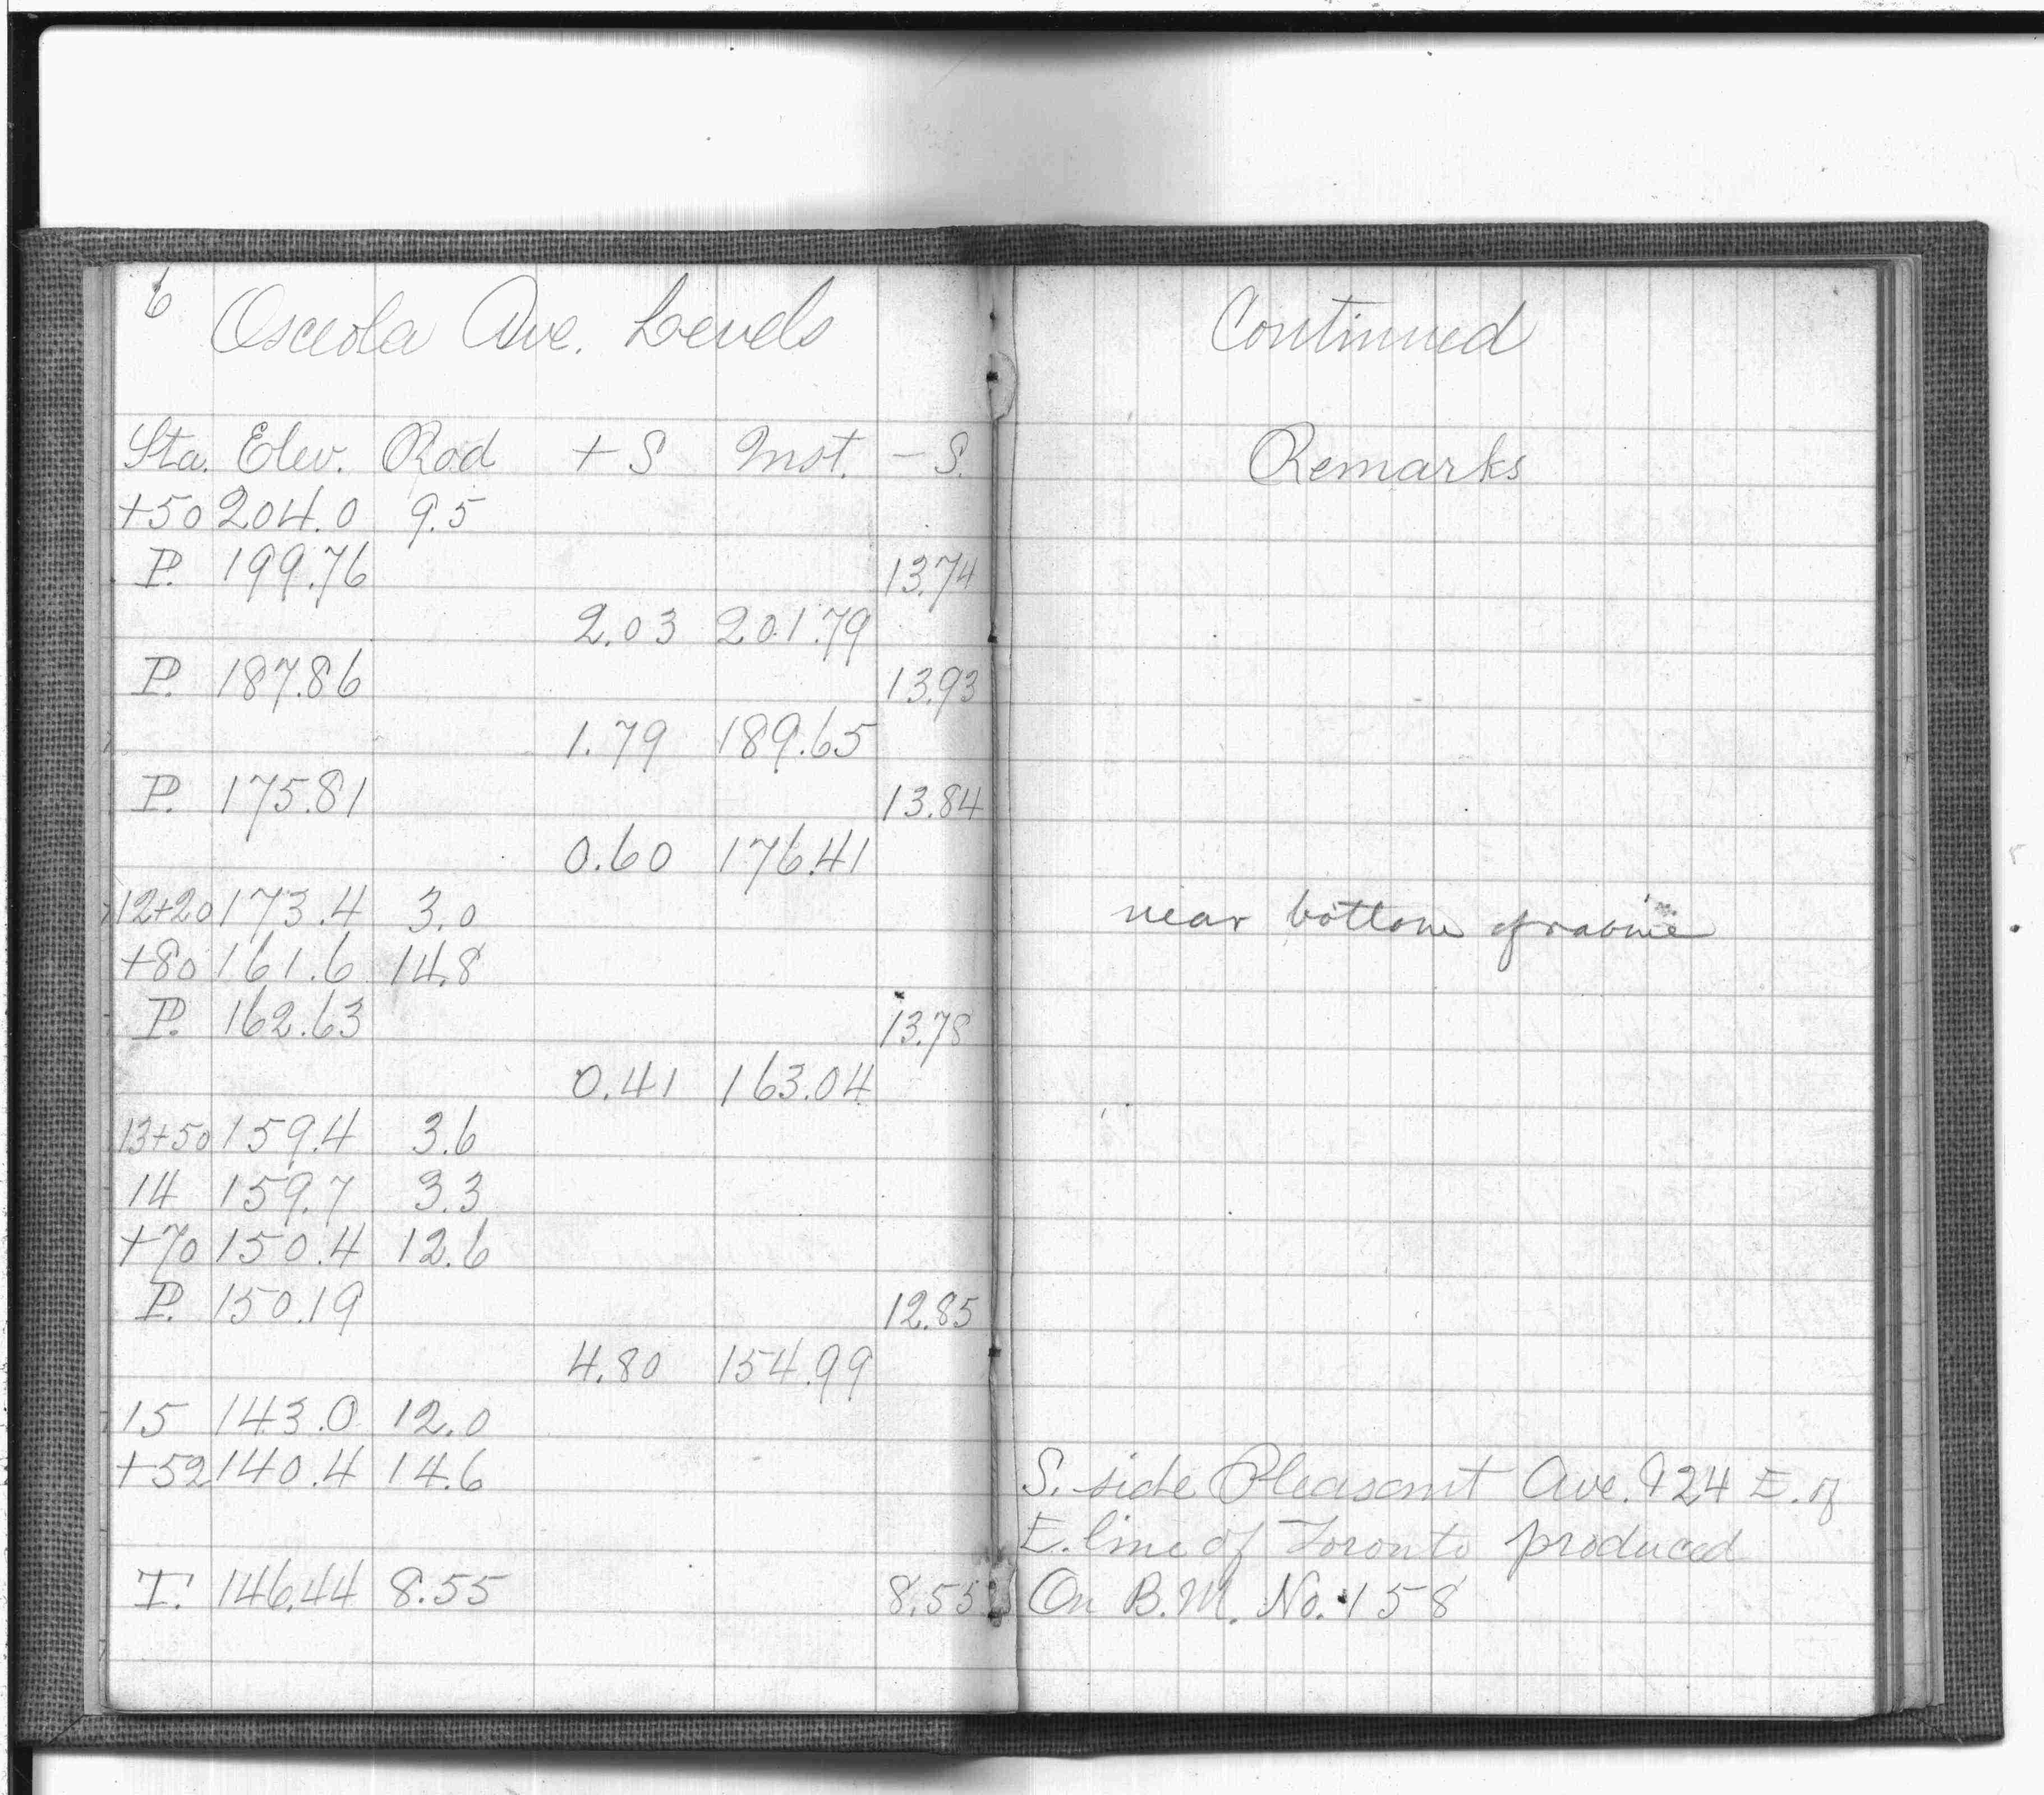 6
Osceola Ave. Levels
Sta. Elev. Rod + S Inst. - S.
+50 204.0 9.5
P. 199.76 13.74
2.03 201.79
P. 187.86 13.93
1.79 189.65
P. 175.81 13.84
0.60 176.41
12+20 173.4 3.0
+80 161.6 14.8
P. 162.63 13.78
0.41 163.04
13+50 159.4 3.6
14 159.7 3.3
+70 150.4 12.6
P. 150.19 12.85
4.80 154.99
15 143.0 12.0
+52 140.4 14.6
T. 146.44 8.55 8.55
Continued
Remarks
near bottom of ravine
S. side Pleasant Ave. 924 E. of
E. line of Toronto produced
On B.M. No. 158